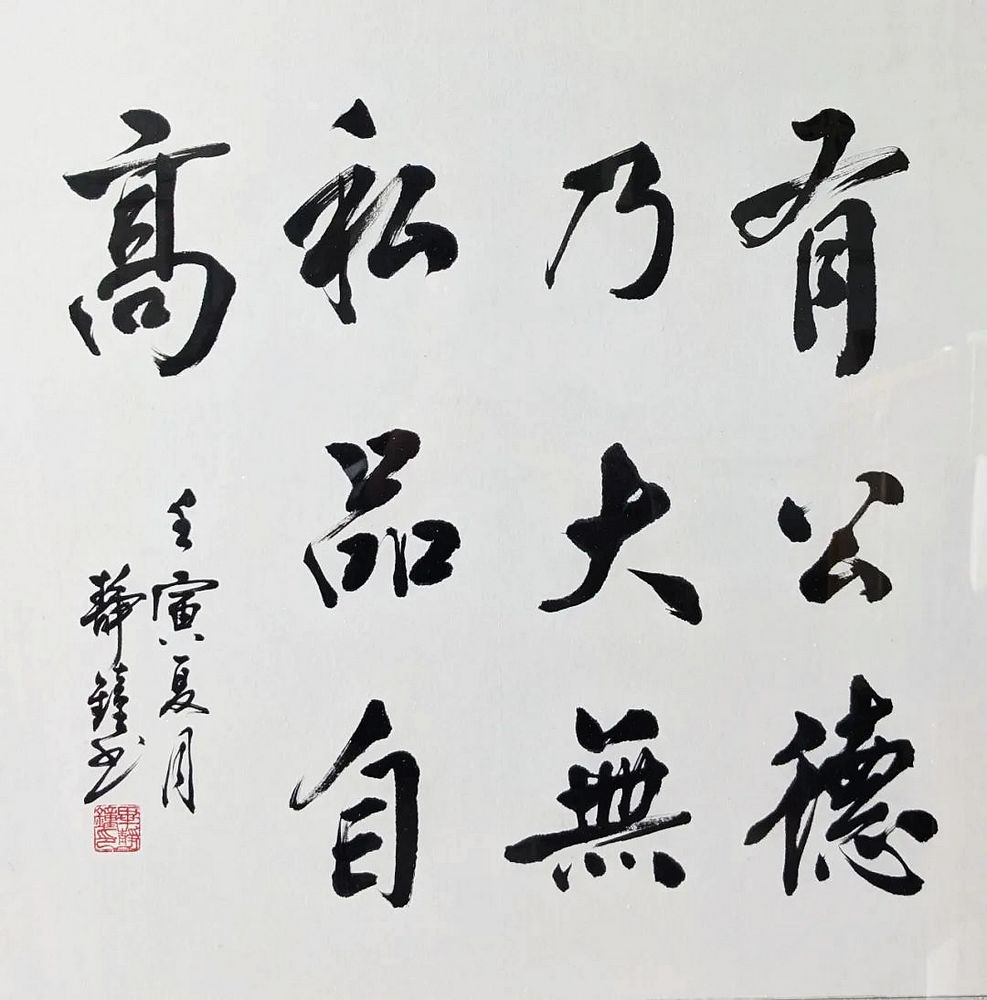 有公德
乃大無
私品自
高
壬寅夏月
靜鐘書